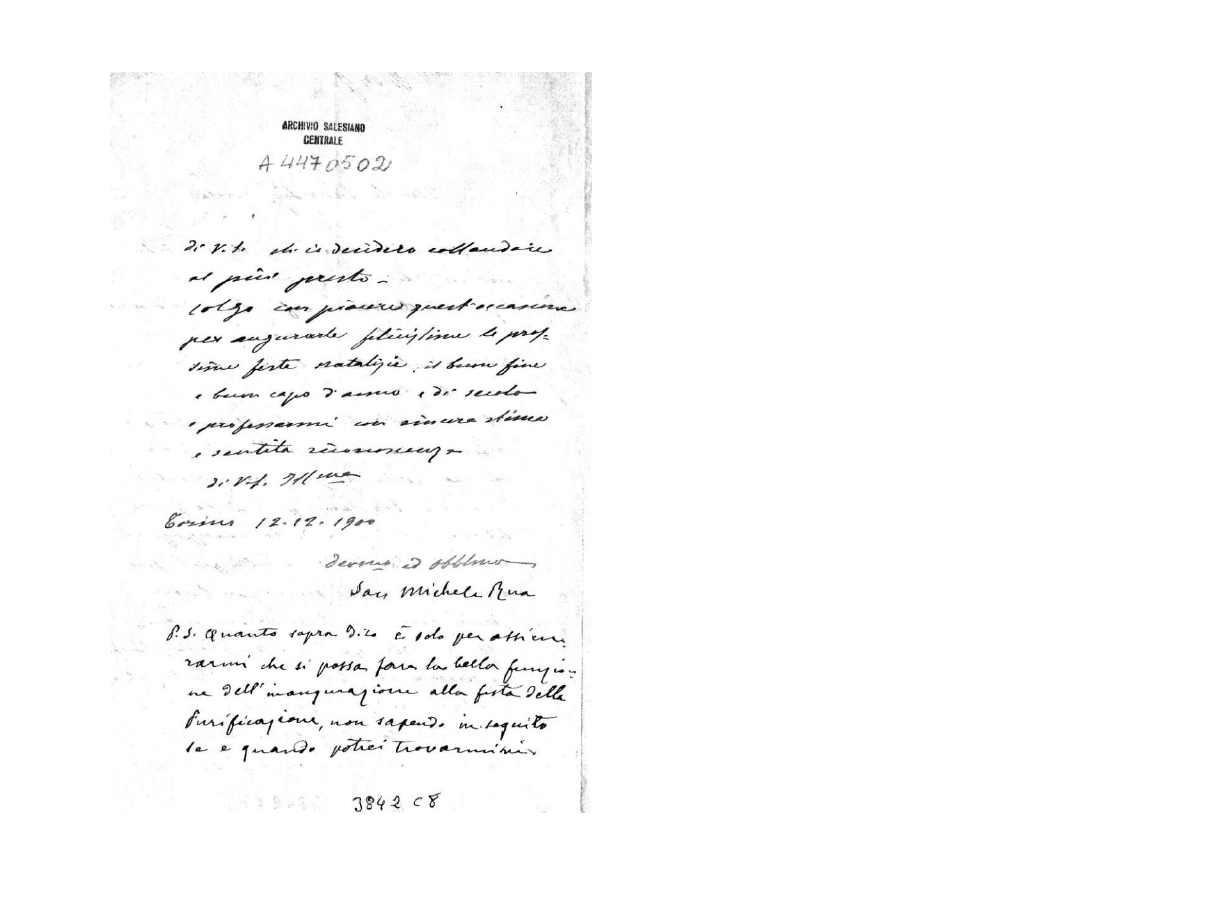 ARCHIVIO SALESIANO
CENTRALE
A 4470502
di V. S. che io desidero collaudare
al più presto -
Colgo con piacere quest'occasione
per augurarle felicissime le pros-
sime feste natalizie, il buon fine
e buon capo d'anno e di secolo
e professarmi con sincera stima
e sentita riconoscenza
di V. S. Ill.ma
Torino 12-12-1900
devmo ed obblmo
Sac Michele Rua
P. S. Quanto sopra dico è solo per assicu-
rarmi che si possa fare la bella funzio-
ne dell'inaugurazione alla festa della
Purificazione, non sapendo in seguito
se e quando potrei trovarmivi
3842 C8